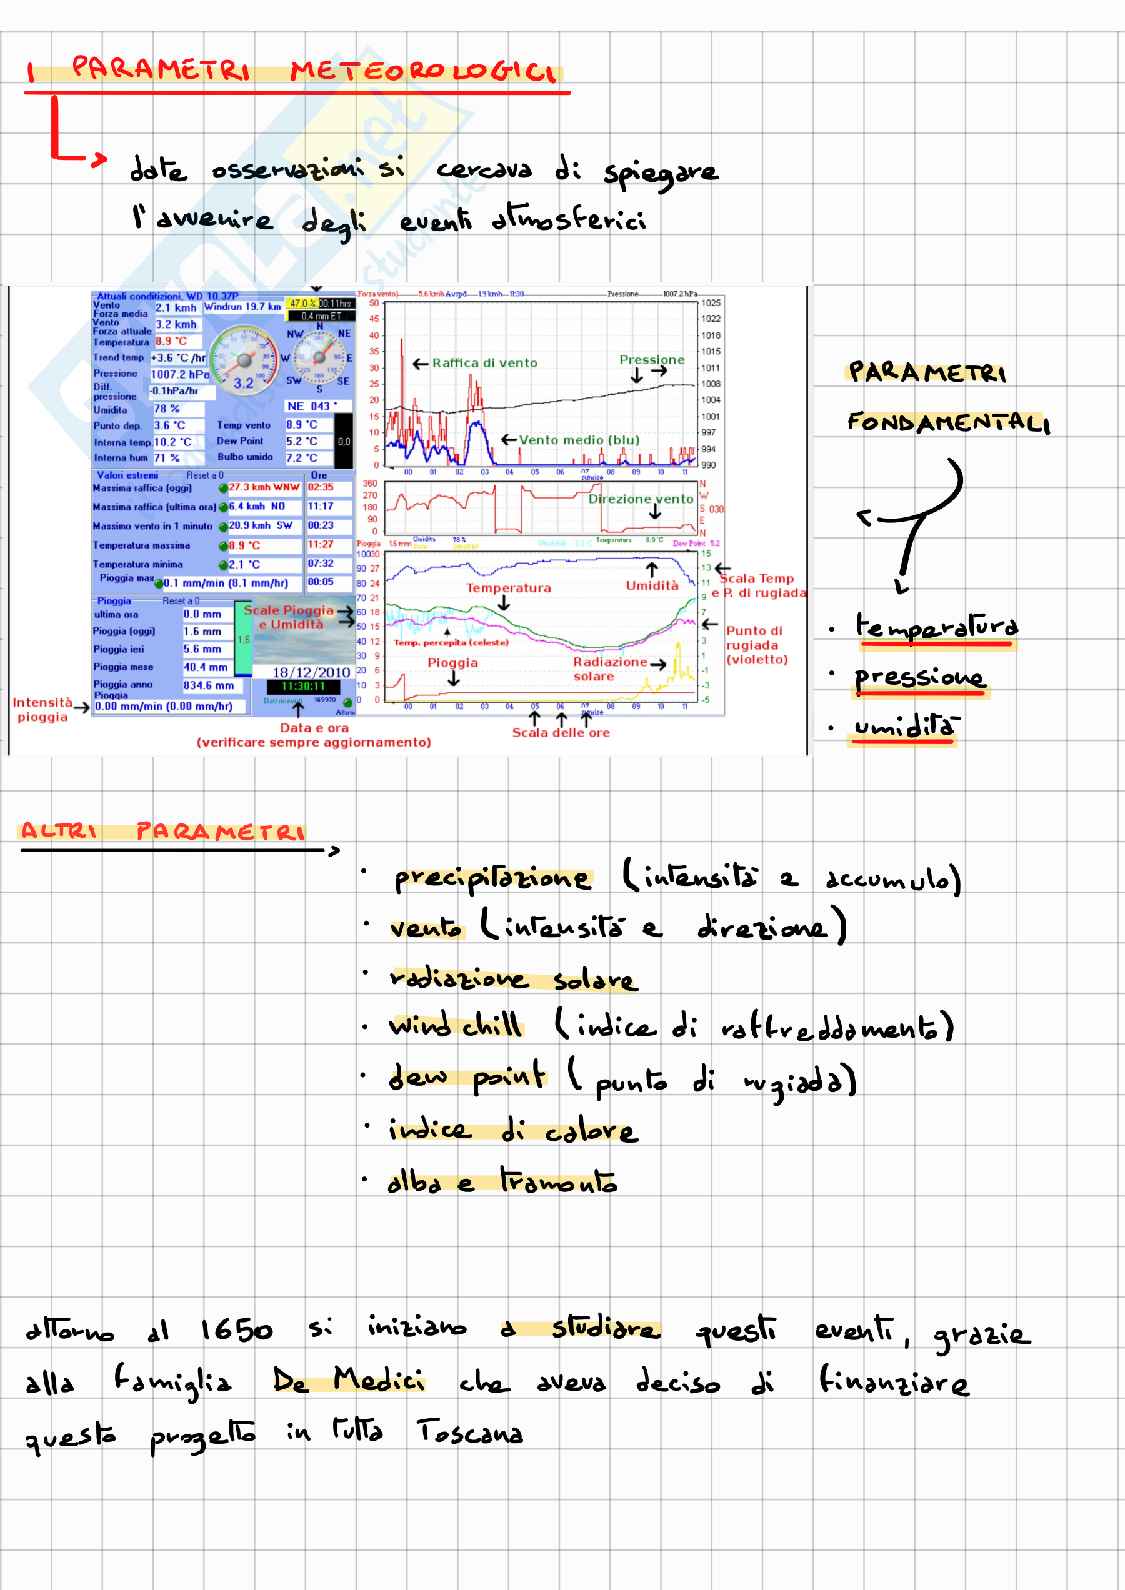 I PARAMETRI METEOROLOGICI
date osservazioni si cercava di spiegare
l'avvenire degli eventi atmosferici
Attuali condizioni, WD 10.37P
Vento Forza media 2.1 kmh Windrun 19.7 km 47.0 % 00.11hrs
0.4 mm ET
Vento Forza attuale 3.2 kmh
Temperatura 8.9 °C
Trend temp +3.6 °C /hr
Pressione 1007.2 hPa
Diff. pressione -0.1hPa/hr
Umidita 78 %
Punto dep. 3.6 °C Temp vento 8.9 °C
Interna temp. 10.2 °C Dew Point 5.2 °C
Interna hum 71 % Bulbo umido 7.2 °C
N
NW NE
W E
SW SE
S
3.2
NE 043 °
0.0
Valori estremi Reset a 0 Ore
Massima raffica (oggi) 27.3 kmh WNW 02:35
Massima raffica (ultima ora) 6.4 kmh NO 11:17
Massimo vento in 1 minuto 20.9 kmh SW 00:23
Temperatura massima 8.9 °C 11:27
Temperatura minima 2.1 °C 07:32
Pioggia max 0.1 mm/min (8.1 mm/hr) 00:05
Pioggia Reset a 0
ultima ora 0.0 mm
Pioggia (oggi) 1.6 mm
Pioggia ieri 5.6 mm
Pioggia mese 40.4 mm
Pioggia anno 834.6 mm
Pioggia
0.00 mm/min (0.00 mm/hr)
1.6
Scale Pioggia
e Umidità
18/12/2010
11:30:11
Intensità
pioggia
Data e ora
(verificare sempre aggiornamento)
Pressione 1007.2 hPa
50 45 40 35 30 25 20 15 10 5 0
1025 1022 1018 1015 1011 1008 1004 1001 997 994 990
Raffica di vento
Pressione
Vento medio (blu)
00 01 02 03 04 05 06 07 08 09 10 11
360 270 180 90 0
N W S E N
Direzione vento
038
Pioggia 1.6 mm Umidita 78 % Temperatura 8.9°C Dew Point 5.2
100 90 80 70 60 50 40 30 20 10 0
30 27 24 21 18 15 12 9 6 3 0
15 13 11 9 7 5 3 1 -1 -3 -5
Temperatura
Umidità
Scala Temp
e P. di rugiada
Temp. percepita (celeste)
Punto di
rugiada
(violetto)
Pioggia
Radiazione
solare
00 01 02 03 04 05 06 07 08 09 10 11
Scala delle ore
PARAMETRI
FONDAMENTALI
· temperatura
· pressione
· umidità
ALTRI PARAMETRI
· precipitazione (intensità e accumulo)
· vento (intensità e direzione)
· radiazione solare
· wind chill (indice di raffreddamento)
· dew point (punto di rugiada)
· indice di calore
· alba e tramonto
attorno al 1650 si iniziano a studiare questi eventi, grazie
alla famiglia De Medici che aveva deciso di finanziare
questo progetto in tutta Toscana